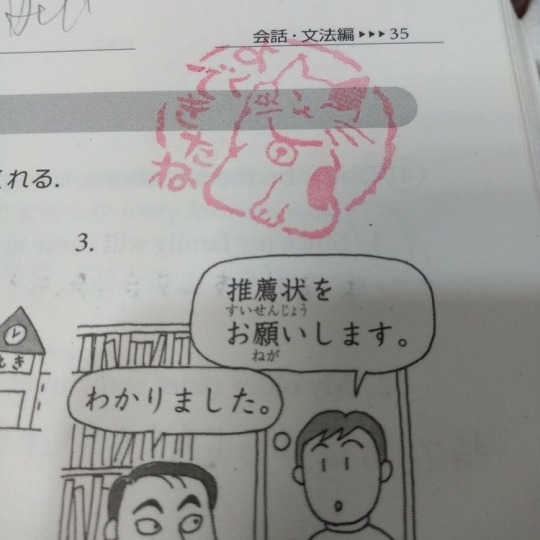 会話・文法編 ▸▸▸ 35
よくできたね
くれる.
3.
推薦状を
すいせんじょう
お願いします。
ねが
わかりました。